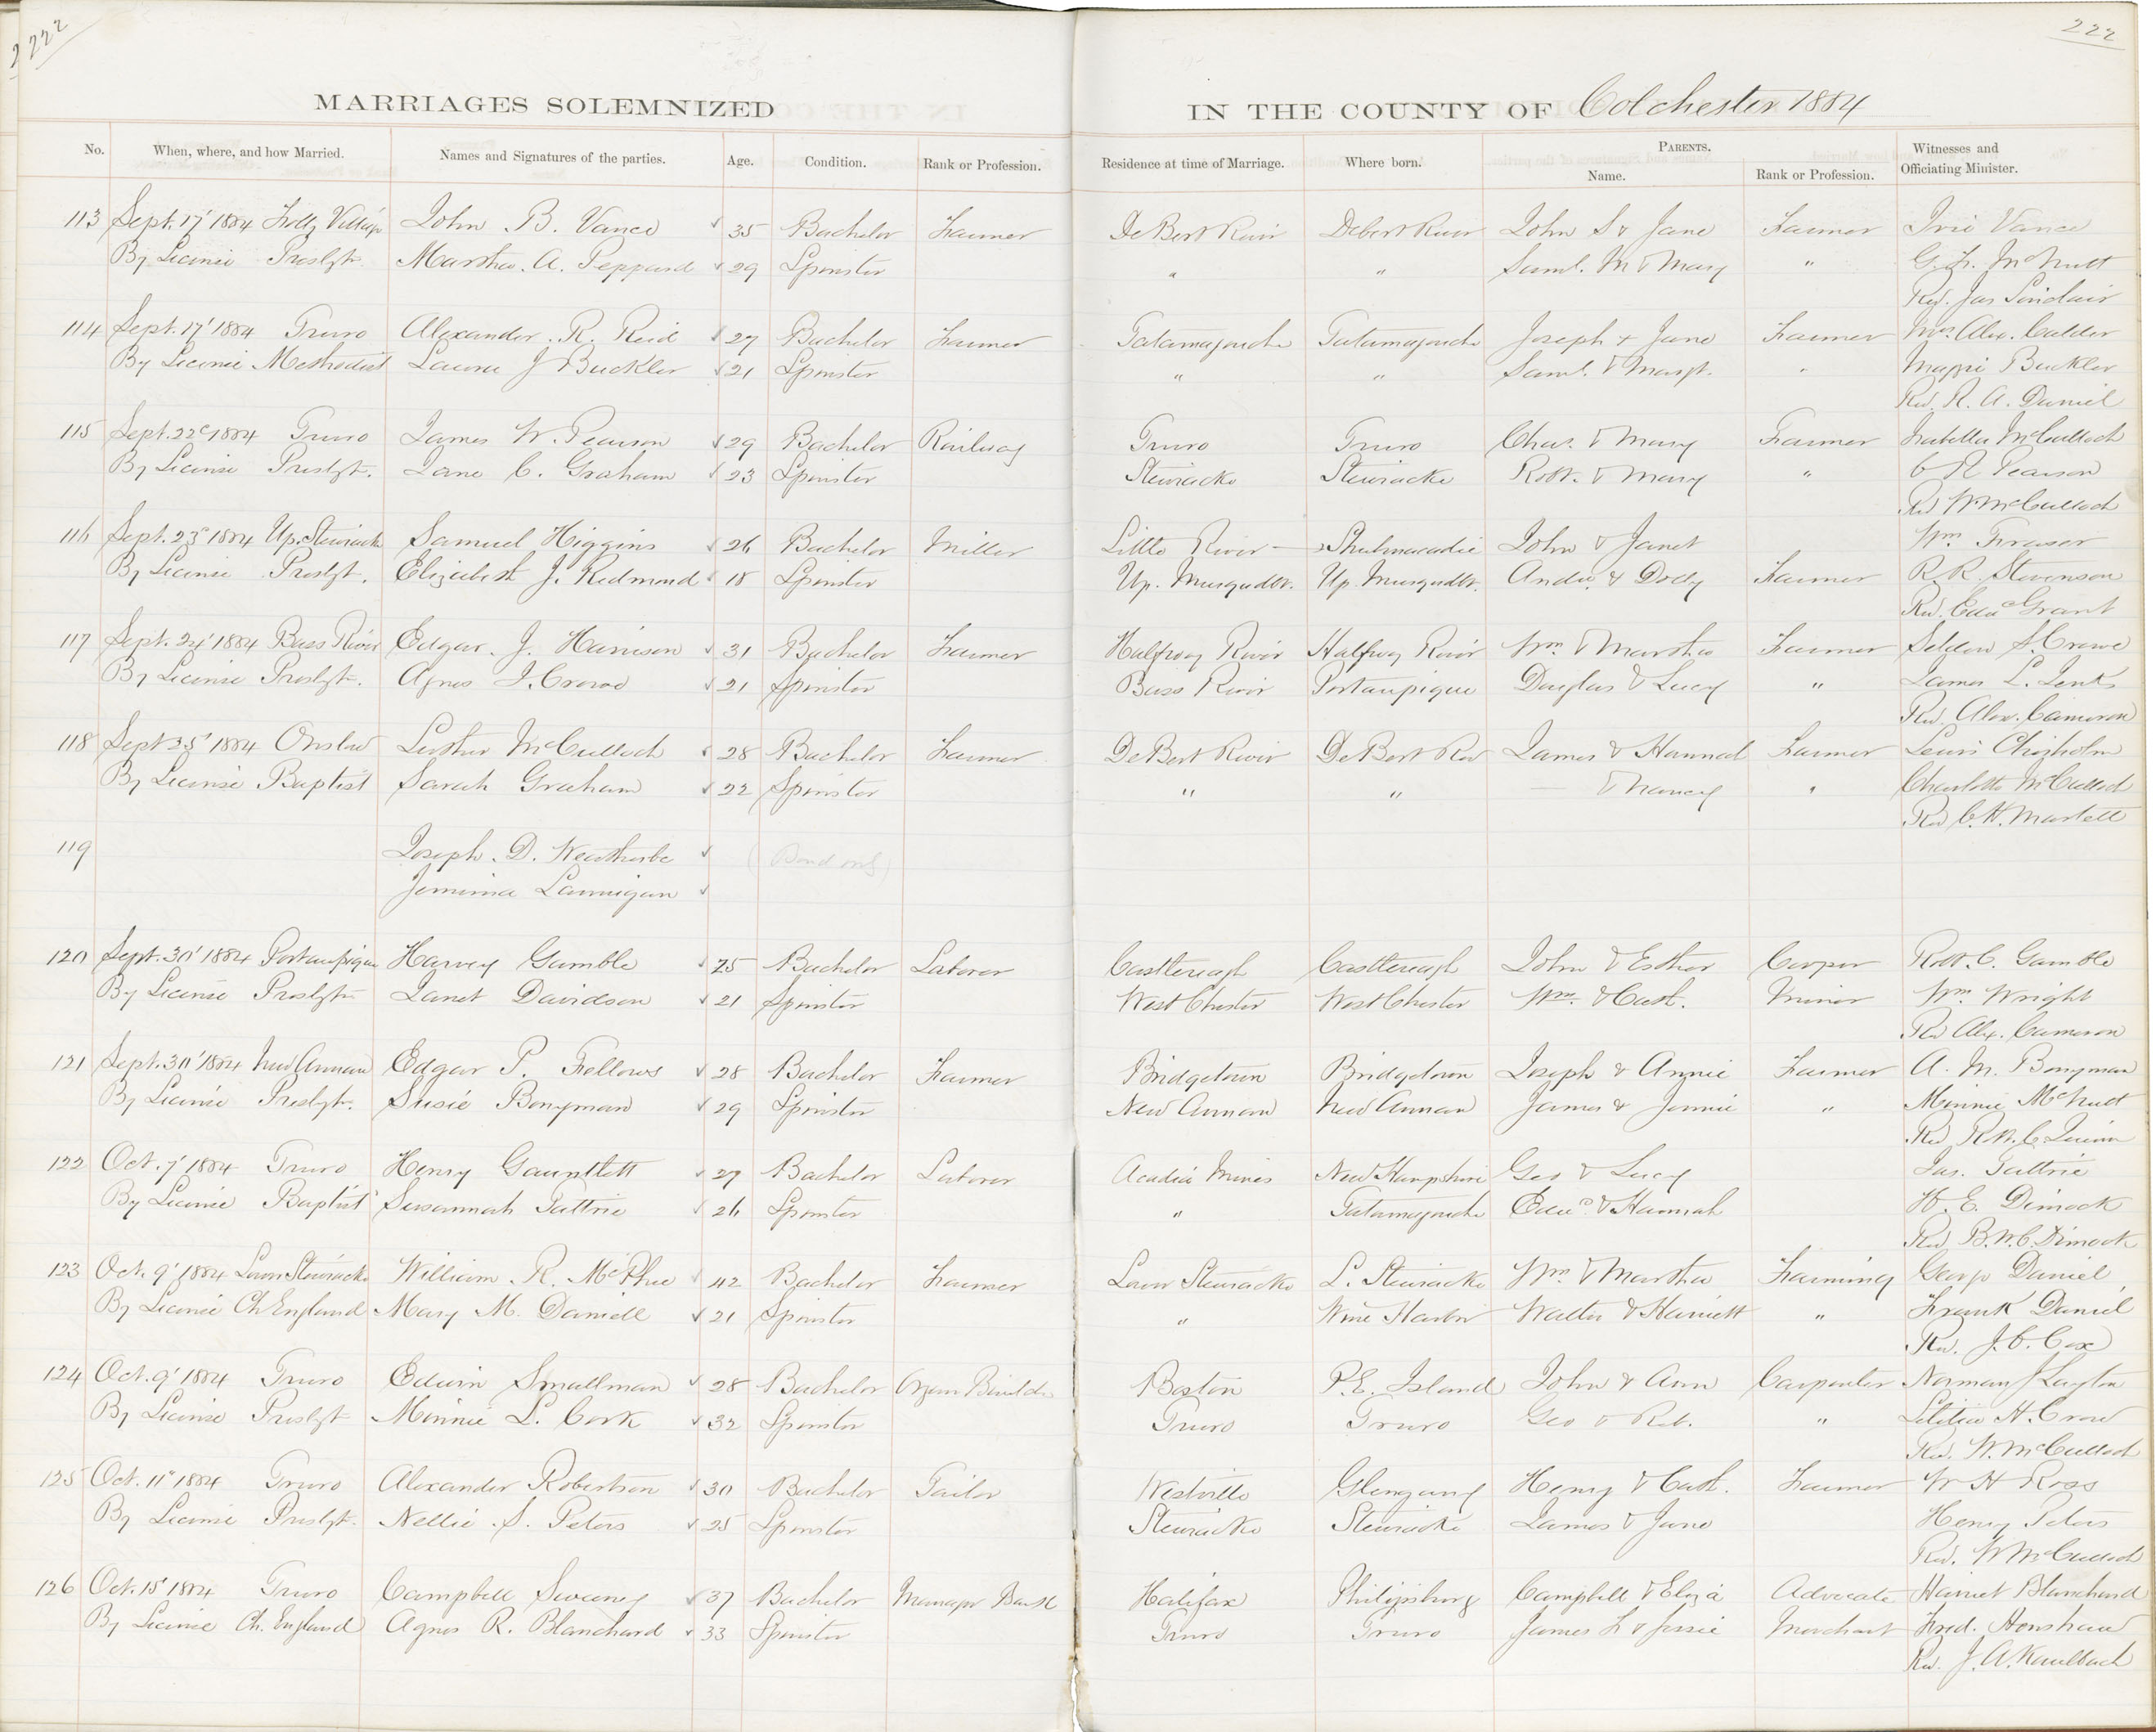 222
222
MARRIAGES SOLEMNIZED IN THE COUNTY OF Colchester 1884
No. When, where, and how Married. Names and Signatures of the parties. Age. Condition. Rank or Profession. Residence at time of Marriage. Where born. PARENTS. Name. Rank or Profession. Witnesses and Officiating Minister.
113 Sept. 17' 1884 Folly Village John B. Vance 35 Bachelor Farmer DeBert River Debert River John S & Jane Farmer Vance
By License Presbyt. Martha A. Peppard 29 Spinster " " Saml. M & Mary " G. F. McNutt
Rev. Jas Sinclair
114 Sept. 17' 1884 Truro Alexander R. Reid 27 Bachelor Farmer Tatamagouche Tatamagouche Joseph & Jane Farmer Mrs. Alex. Calder
By License Methodist Laura J Buckler 21 Spinster " " Saml. & Margt. " Maggie Buckler
Rev. R. A. Daniel
115 Sept. 22d 1884 Truro James W. Pearson 29 Bachelor Railway Truro Truro Chas. & Mary Farmer Isabella McCulloch
By License Presbyt. Jane C. Graham 23 Spinster Stewiacke Stewiacke Robt. & Mary " C R Pearson
Rev W McCulloch
116 Sept. 23d 1884 Up. Stewiacke Samuel Higgins 26 Bachelor Miller Little River Shubenacadie John & Janet Wm Fraser
By License Presbyt. Elizabeth J. Redmond 18 Spinster Up. Musquodbt. Up. Musquodbt. Andw. & Dolly Farmer R. R. Stevenson
Rev. Edwd Grant
117 Sept. 24' 1884 Bass River Edgar J. Harrison 31 Bachelor Farmer Halfway River Halfway River Wm & Martha Farmer Seldon S. Crowe
By License Presbyt. Agnes J. Crowe 21 Spinster Bass River Portaupique Douglas & Lucy " James L. Lents
Rev. Alex. Cameron
118 Sept 25' 1884 Onslow Luther McCulloch 28 Bachelor Farmer DeBert River DeBert Riv James & Hannah Farmer Lewis Chisholm
By License Baptist Sarah Graham 22 Spinster " " — & Nancy " Charlotte McCulloch
Rev C. H. Martell
119 Joseph D. Weatherbe (Bond only)
Jemima Lannigan
120 Sept. 30' 1884 Portaupique Harvey Gamble 25 Bachelor Laborer Castlereagh Castlereagh John & Esther Cooper Robt. C. Gamble
By License Presbyt. Janet Davidson 21 Spinster West Chester West Chester Wm. & Cath. Miner Wm. Wright
Rev Alex. Cameron
121 Sept. 30' 1884 New Annan Edgar P. Fellows 28 Bachelor Farmer Bridgetown Bridgetown Joseph & Annie Farmer A. M. Bonyman
By License Presbyt. Susie Bonyman 29 Spinster New Annan New Annan James & Jennie " Minnie McNutt
Rev
122 Oct. 7' 1884 Truro Henry Gauntlett 27 Bachelor Laborer Acadia Mines New Hampshire Geo & Lucy Jas. Guttrie
By License Baptist Susannah Guttrie 26 Spinster " Tatamagouche Edwd. & Hannah W. E. Dimock
Rev B. N. C. Dimock
123 Oct. 9' 1884 Lower Stewiacke William R. McPhee 42 Bachelor Farmer Lower Stewiacke L. Stewiacke Wm & Martha Farming George Daniel
By License Ch England Mary M. Daniell 21 Spinster " Wine Harbor Walter & Harriett " Frank Daniel
Rev. J. C. Cox
124 Oct. 9' 1884 Truro Edwin Smallman 28 Bachelor Organ Builder Boston P.E. Island John & Ann Carpenter Norman J Layton
By License Presbyt Minnie L. Cork 32 Spinster Truro Truro Geo & Reb. " Letitia H. Crow
Rev. W. McCulloch
125 Oct. 11' 1884 Truro Alexander Robertson 30 Bachelor Tailor Westville Glengarry Henry & Cath. Farmer W H Ross
By License Presbyt. Nellie S. Peters 25 Spinster Stewiacke Stewiacke James & Jane Henry Peters
Rev. W McCulloch
126 Oct. 15' 1884 Truro Campbell Sweeney 37 Bachelor Manager Bank Halifax Philipsburg Campbell & Eliza Advocate Harriet Blanchard
By License Ch. England Agnes R. Blanchard 33 Spinster Truro Truro James F & Jessie Merchant Fred. Henshaw
Rev. J. A. Kaulback